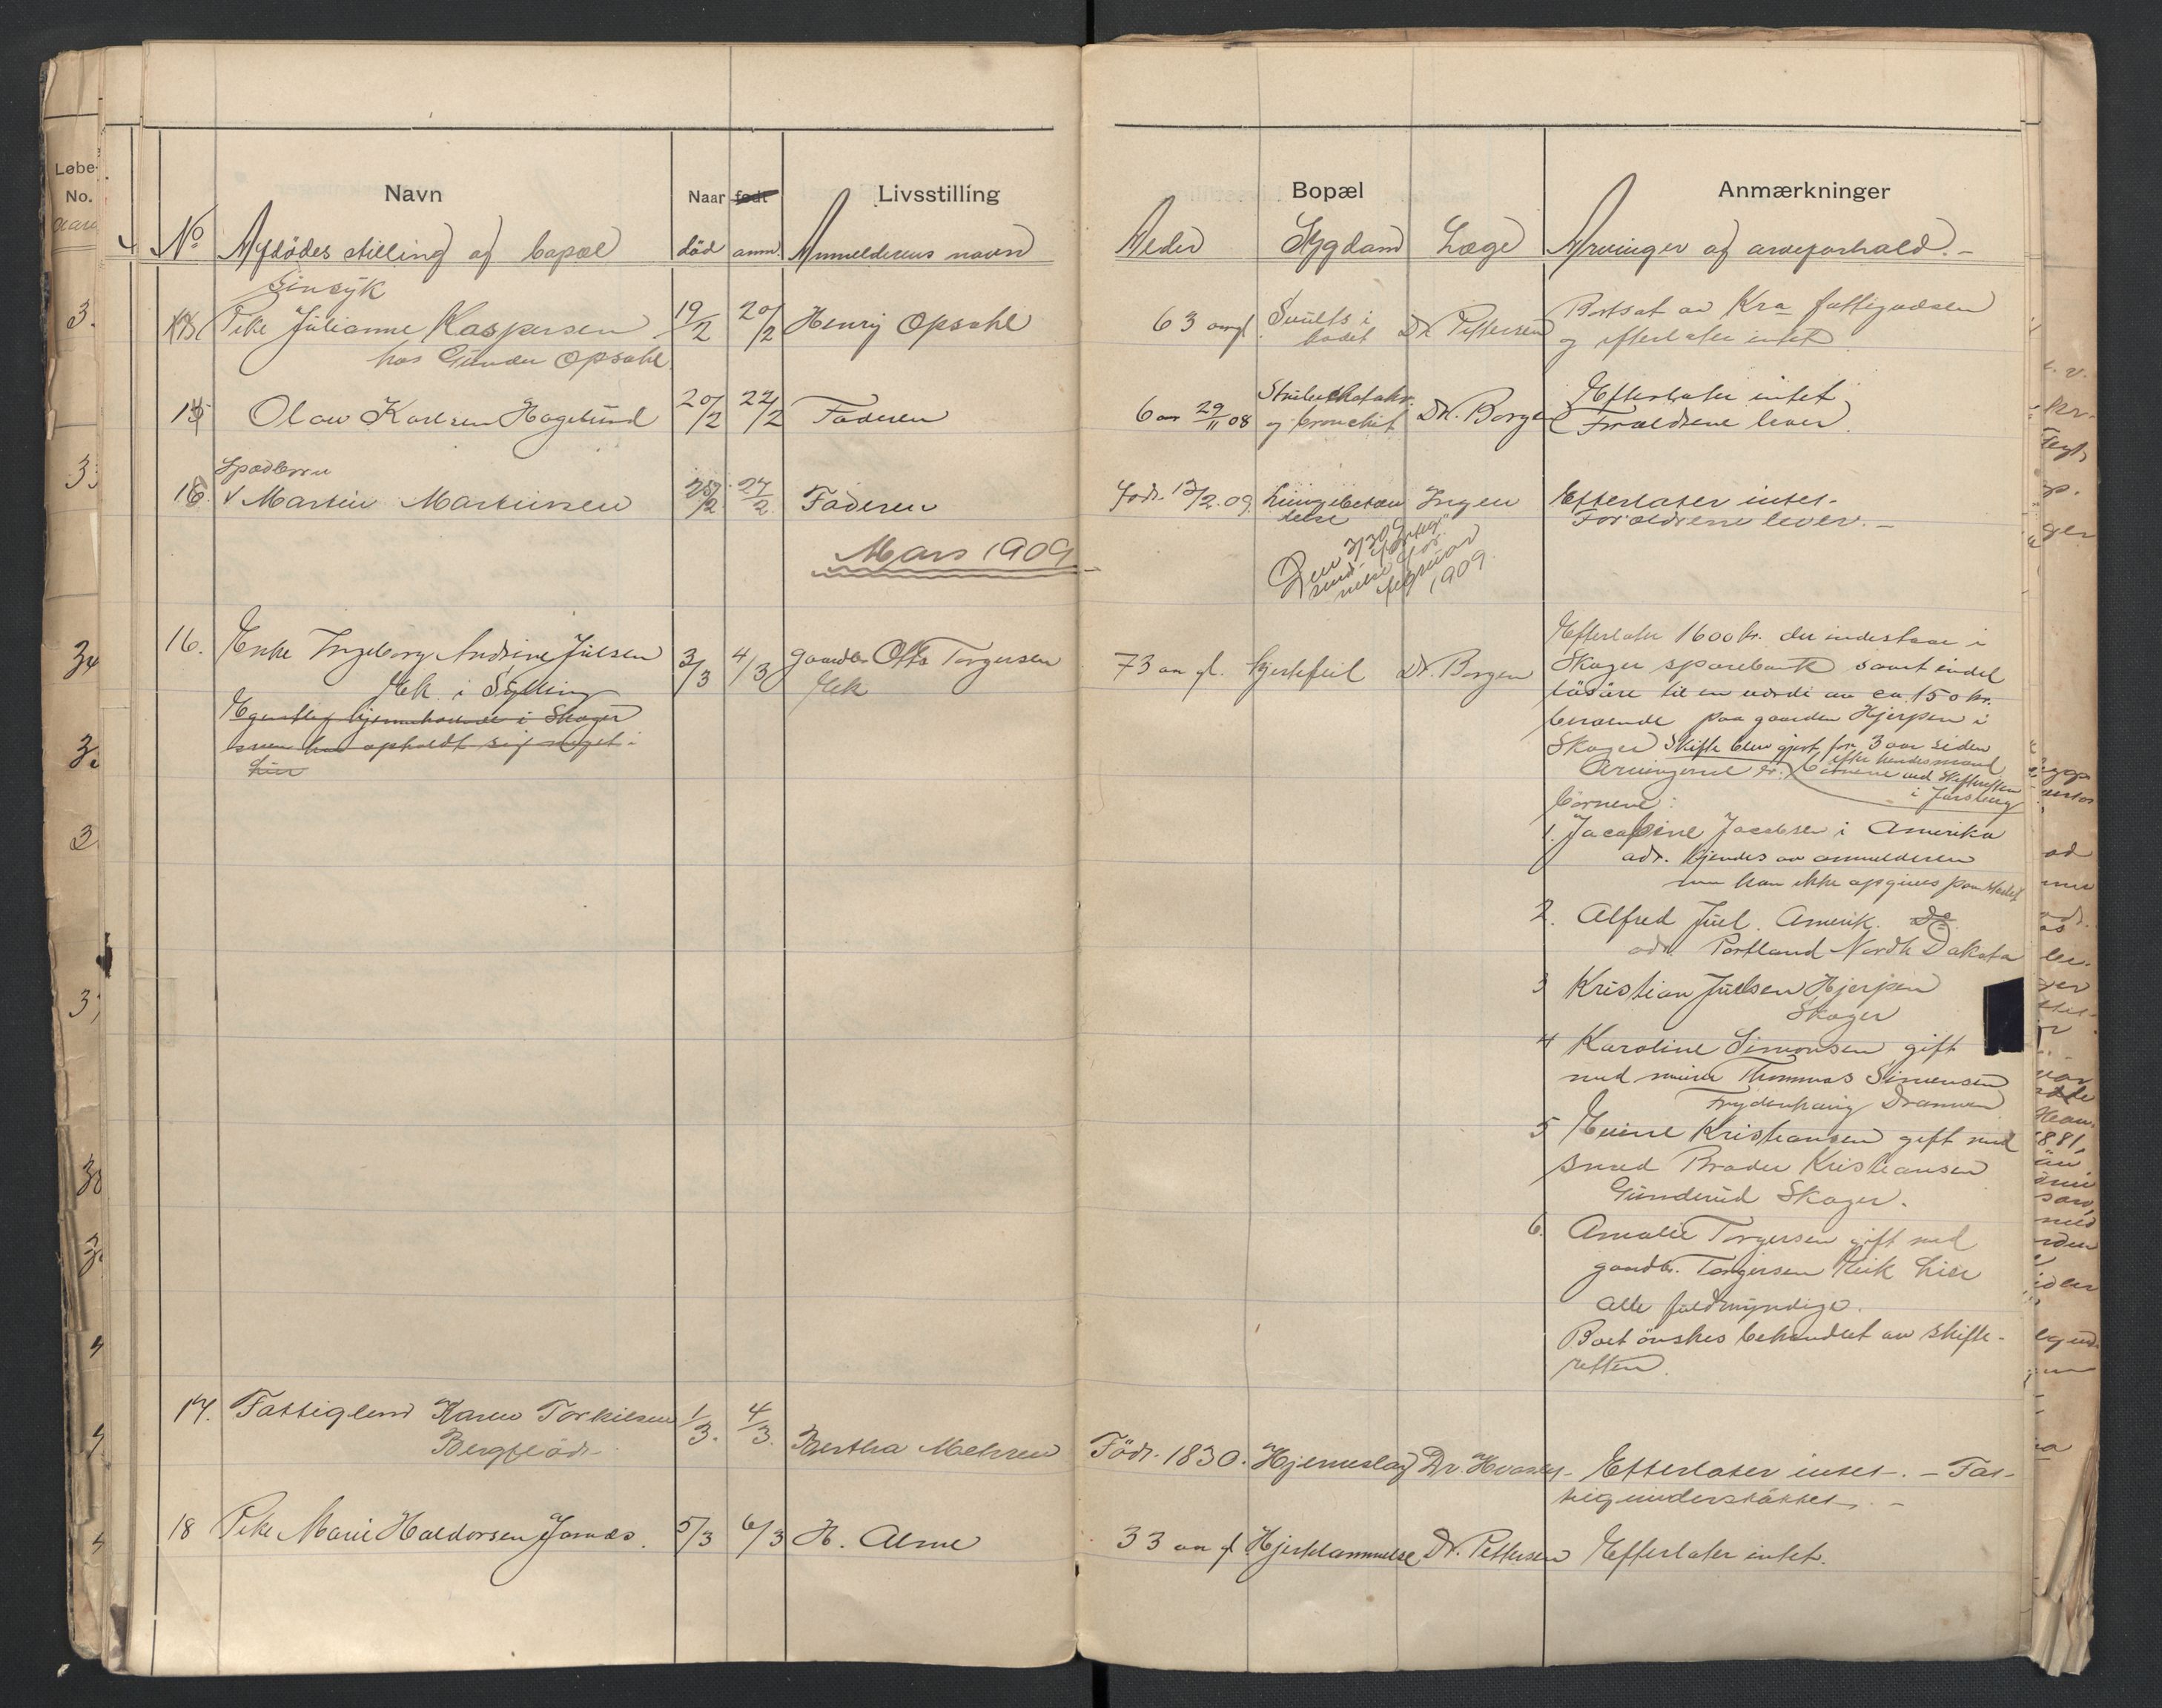 Løbe-
No.
Navn
Naar født
Livsstilling
Bopæl
Anmærkninger
No
Afdødes stilling og bopæl
død
anm.
Anmelderens navn
Alder
Sygdom
Læge
Arvinger og arveforhold. -
Sinsyk
Pike Julianne Kaspersen
hos Gunder Opsahl
19/2
20/2
Henry Opsahl
63 aar gl.
Svulst i
Dr. Pettersen
Bortsat av Kra fattigvæsen
og efterlater intet
15
Olav Karlsen Hagelund
20/2
22/2
Faderen
6 29/11 08
Strubekatahr
og bronchit
Dr. Borgen
Efterlater intet
Forældrene lever.
Spædbarn
16.
Martin Martinsen
25/2
27/2
Faderen
Født 12/2.09.
Lungebetæn
delse
Ingen
Efterlater intet.
Forældrene lever. -
Mars 1909
Den 3/3 09
februar
1909.
16.
Enke Ingeborg Andrine Juelsen
Eik i Sylling
Egentlig hjemmehørende i Skoger
men har opholdt sig meget
hier
3/3
4/3
gaardbr. Otto Torgersen
Eik
73 aar gl.
hjertefeil
Dr. Borgen
Efterlater 1600 kr. der indestaar i
Skoger sparebank samt endel
løsøre til en værdi av ca. 150 kr.
beroende paa gaarden Hjerpen i
Skoger Skifte blev gjort for 3 aar siden
efter hendes mand
Arvingerne er:
ved Skifteretten
i Jarlsberg
børnene:
1. Jacobine Jacobsen i Amerika
adr. kjendes av anmelderen
men kan ikke opgives paa stedet
2. Alfred Juel. Amerik. Do
adr. Portland North Dakota
3 Kristian Juelsen Hjerpen
Skoger
4 Karoline Simonsen gift
med murer Thommas Simensen
Frydenhaug Drammen
5 Eveline Kristiansen gift med
smed Brader Kristiansen
Gunderud Skoger.
6. Amalie Torgersen gift med
gaardbr. Torgersen Eik Lier
Alle fuldmyndige.
Boet ønskes behandlet av skifte-
retten.
17.
Fattiglem Karen Torkilsen
Bergflødt
1/3.
4/3.
Bertha Mehren
Født. 1830.
Hjerneslag
Dr.
Efterlater intet. - Fat-
tigunderstøttet. -
18
Pike Marie Haldorsen
5/3
6/3
H. Alme
33 aar gl.
Hjertelammelse
Dr. Pettersen
Efterlater intet.